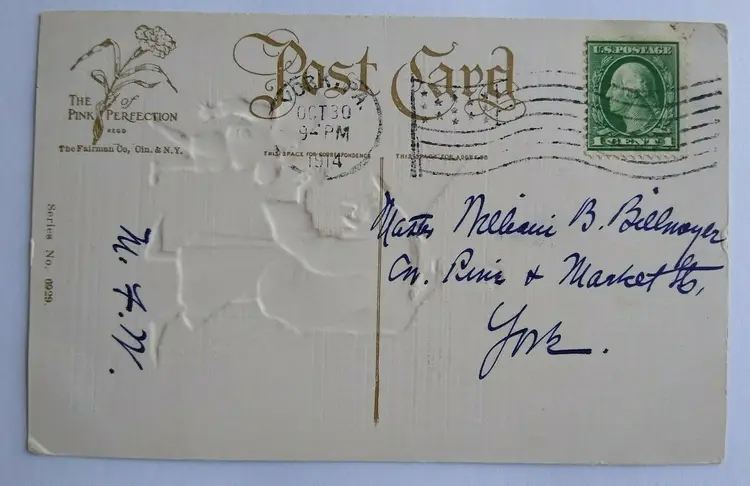 Post Card
THE of
PINK PERFECTION
REGD
The Fairman Co, Cin. & N.Y.
THIS SPACE FOR CORRESPONDENCE
THIS SPACE FOR ADDRESS
YORK, PA
OCT 30
9-PM
1914
U.S. POSTAGE
1 CENT 1
Series No. 6929.
M. F. W.
Master William B. Billmoyer
Cor. Pine & Market St,
York.